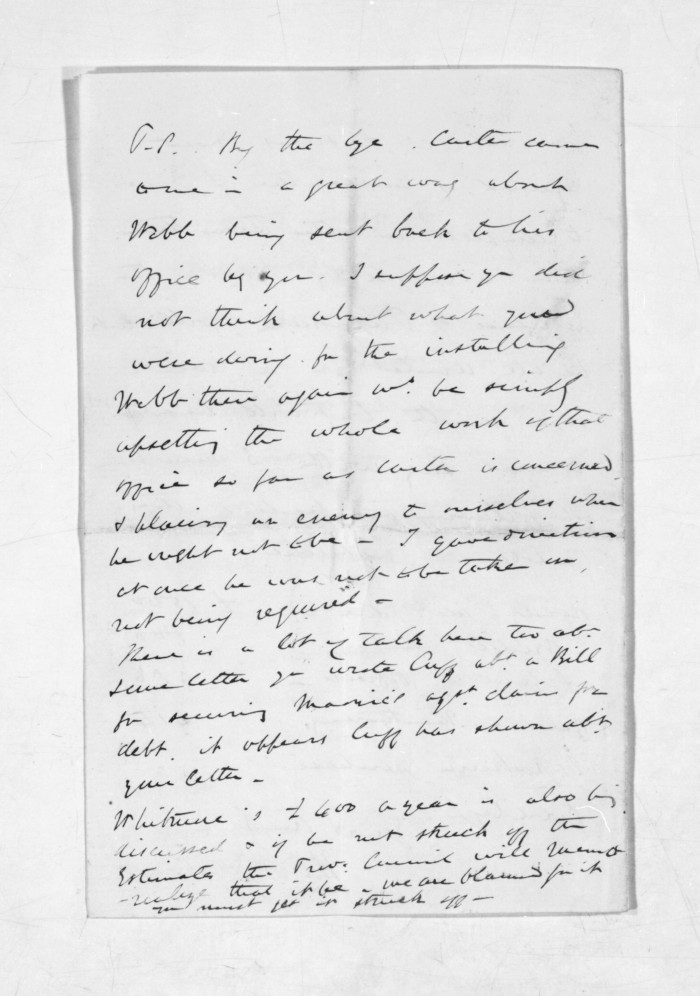 P.S. By the bye. Carter came
to me in a great way about
Webb being sent back to his
office by you. I suppose you did
not think about what you
were doing for the installing
Webb there again wd. be simply
upsetting the whole work of that
office so far as Carter is concerned
& placing an enemy to ourselves when
he ought not to be - I gave directions
at once he was not to be taken on,
not being required -
There is a lot of talk here too abt.
some letter you wrote Cuff abt. a Bill
for securing Maories agst. claims for
debt. it appears Cuff has shown abt.
your letter -
Whitmore's £400 a year is also being
discussed & if be not struck off the
Estimates the Prov. Council will
that it be & we are blamed for it
you must get it struck off -